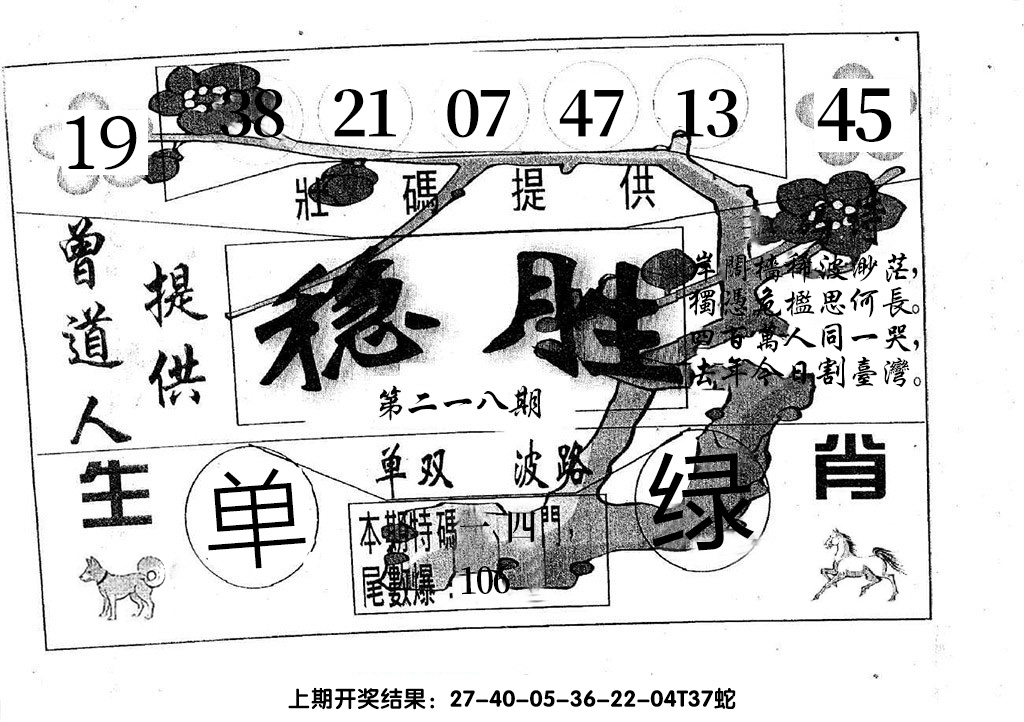 19 38 21 07 47 13 45
壯碼提供
曾道人
提供
稳胜
第二一八期
岸闊檣稀波渺茫，
獨憑危檻思何長。
四百萬人同一哭，
去年今日割臺灣。
单双 波路
生肖
单
绿
本期特碼一、四門，
尾數爆：106
上期开奖结果：27-40-05-36-22-04T37蛇